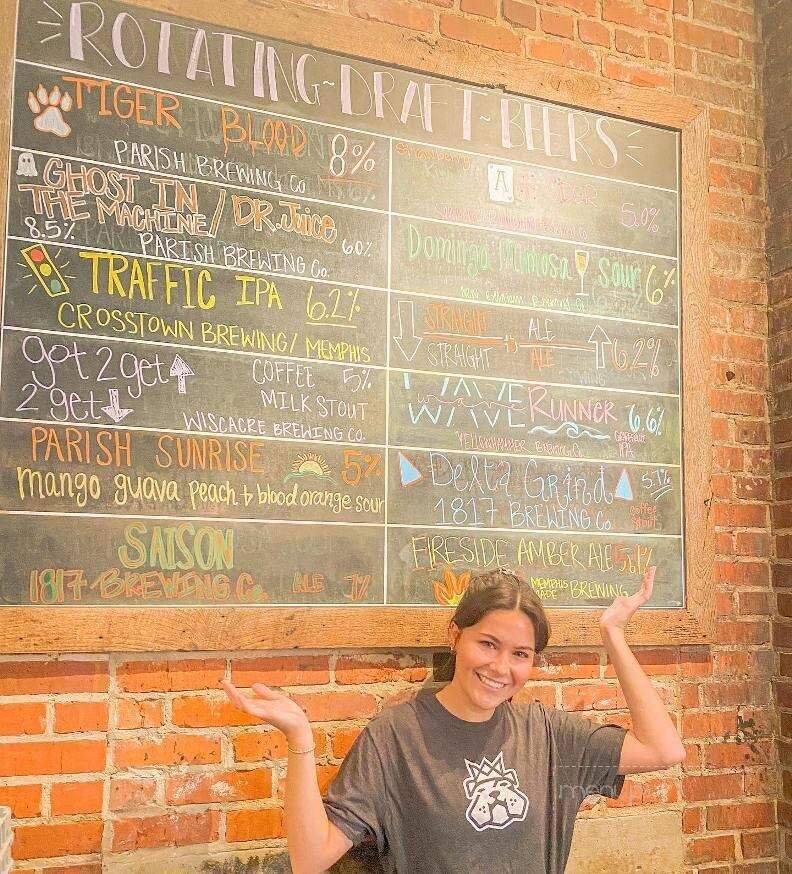 ROTATING DRAFT BEERS
TIGER BLOOD 8%
PARISH BREWING CO.
GHOST IN
THE MACHINE / DR. Juice
8.5% 6.0%
PARISH BREWING Co.
TRAFFIC IPA 6.2%
CROSSTOWN BREWING / MEMPHIS
got 2 get
2 get
COFFEE 5%
MILK STOUT
WISCACRE BREWING CO.
PARISH SUNRISE 5%
mango guava peach & blood orange sour
SAISON
1817 BREWING Co. ALE 7%
A
5.0%
Domingo Mimosa sour 6%
STRAIGHT ALE
STRAIGHT ALE
6.2%
WAVE RUNNER 6.6%
IPA
YELLOWHAMMER BREWING Co.
Delta Grind 5.7%
1817 BREWING Co
coffee
stout
FIRESIDE AMBER ALE 5.1%
MEMPHIS
MADE BREWING
menu